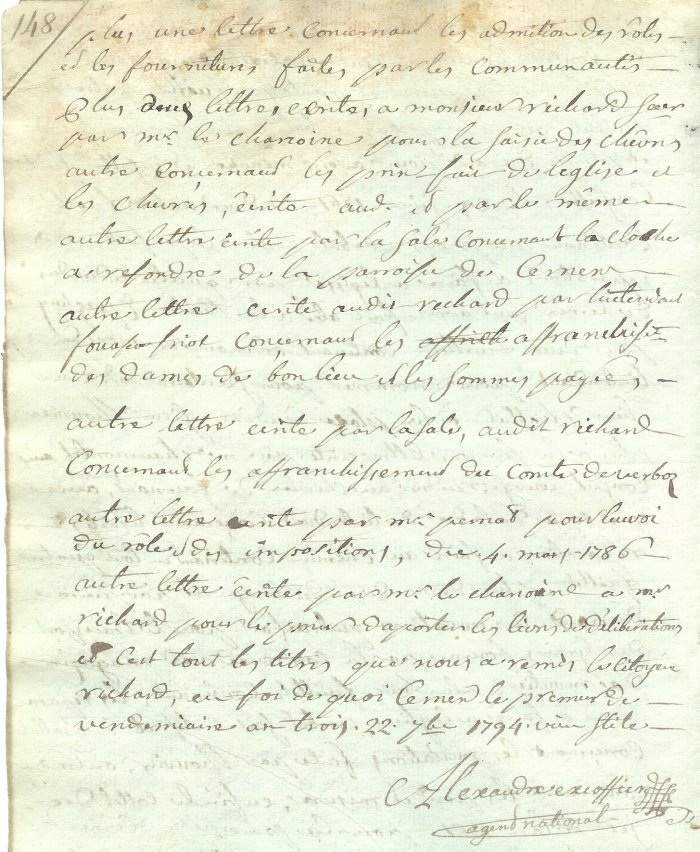 148
plus une lettre concernant les admition des rôles
et les fournitures faites par les communautés
Plus deux lettres écrites a monsieur richard
par mr. le chanoine pour la saisie des chevres
autre concernant les prix fait de leglise et
les chevres, écrite aud. et par le même
autre lettre écrite par la sale concernant la cloche
a refondre de la parroisse de Cernen
autre lettre écrite audit richard par lintendant
friot concernant les affranchisst
des dames de bonlieu et les sommes payées
autre lettre écrite par la sale, audit richard
Concernant les affranchissement du Comte de verboz
autre lettre écrite par mr. pernat pour lenvoi
du rôle des impositions, du 4. mars 1786
autre lettre écrite par mr. le chanoine a mr
richard pour le prier daporter les livres de délibérations
et c'est tout les titres que nous a remis le citoyen
richard, en foi de quoi Cernen le premier de
vendemiaire an trois. 22 7bre 1794. vieu stile
Alexandre excoffier
agend national